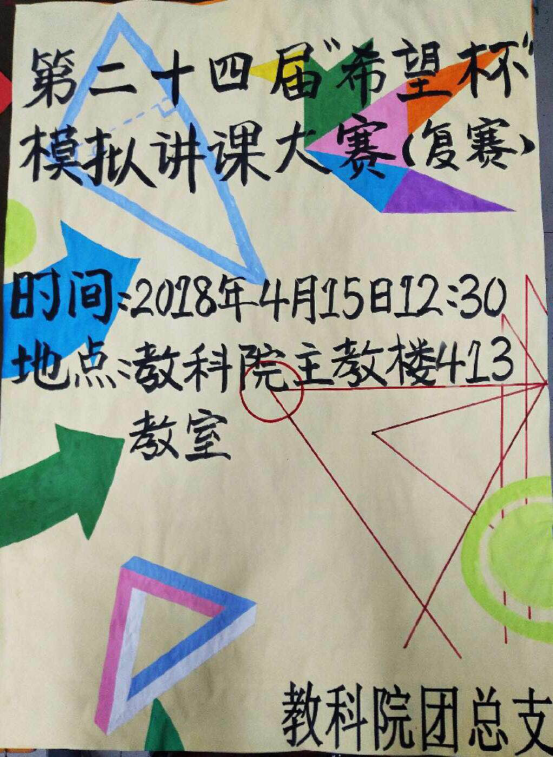 第二十四届"希望杯"
模拟讲课大赛(复赛)
时间:2018年4月15日12:30
地点:教科院主教楼413
教室
教科院团总支